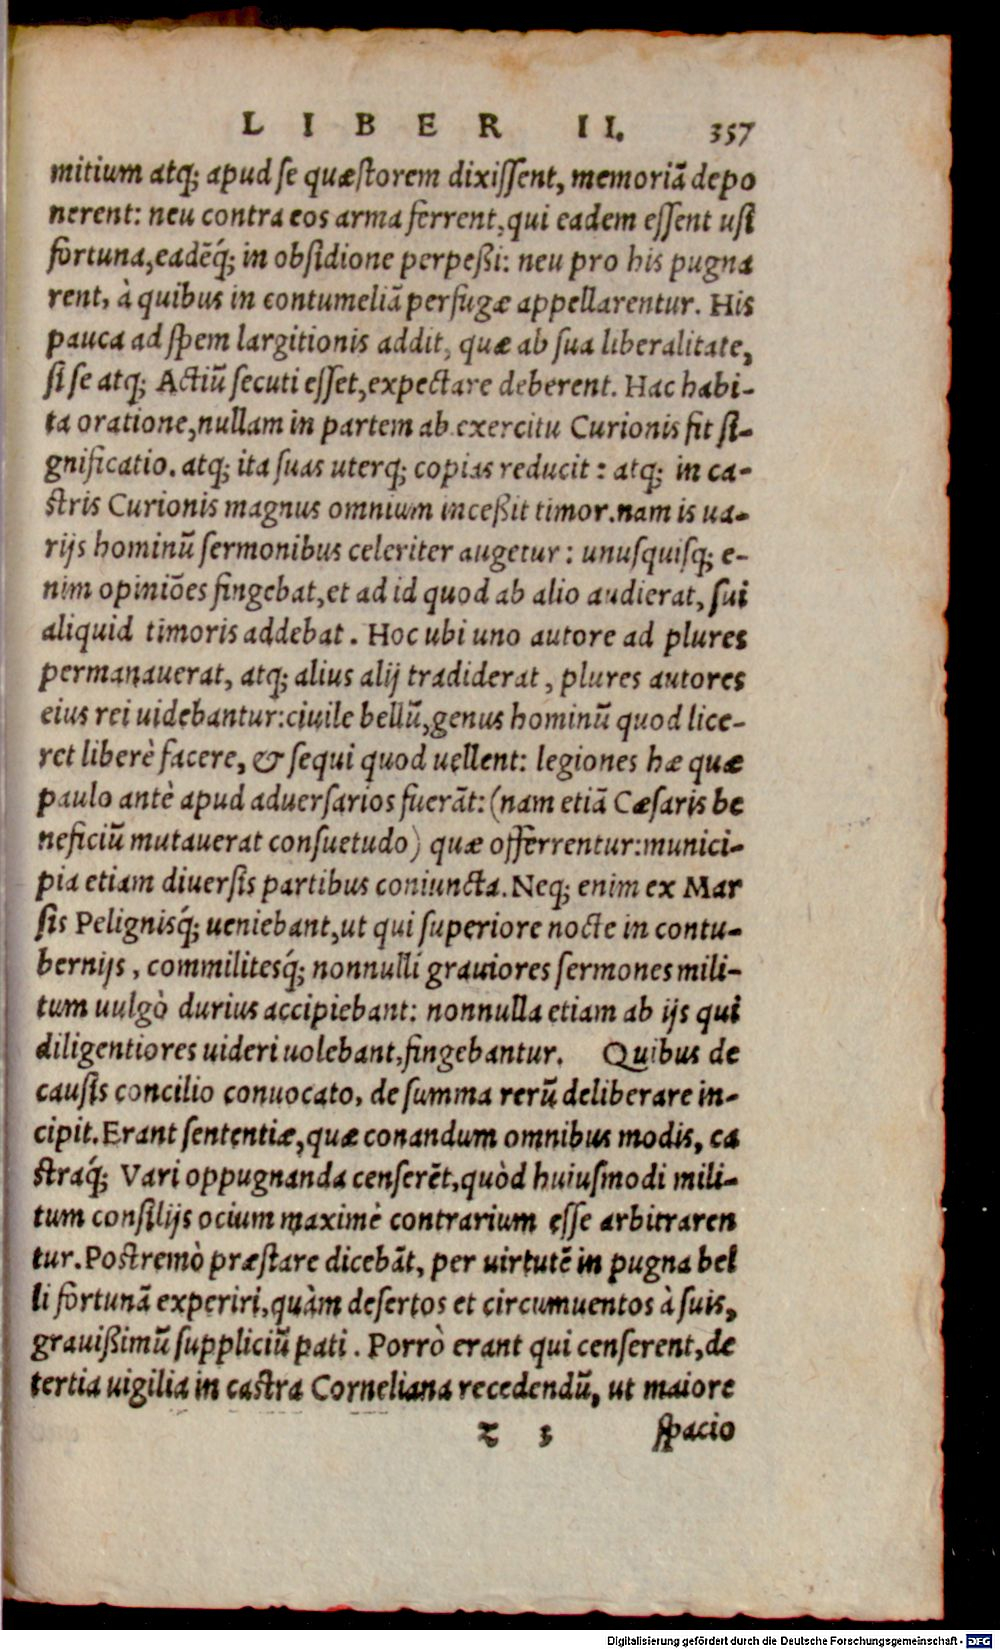 LIBER II. 357
mitium atq; apud se quæstorem dixissent, memoriã depo
nerent: neu contra eos arma ferrent, qui eadem essent usi
fortuna, eadẽq́; in obsidione perpeßi: neu pro his pugna
rent, à quibus in contumeliã perfugæ appellarentur. His
pauca ad spem largitionis addit, quæ ab sua liberalitate,
si se atq; Actiũ secuti esset, expectare deberent. Hac habi-
ta oratione, nullam in partem ab exercitu Curionis fit si-
gnificatio. atq; ita suas uterq; copias reducit: atq; in ca-
stris Curionis magnus omnium inceßit timor. nam is ua-
rijs hominũ sermonibus celeriter augetur: unusquisq; e-
nim opiniões fingebat, et ad id quod ab alio audierat, sui
aliquid timoris addebat. Hoc ubi uno autore ad plures
permanauerat, atq; alius alij tradiderat, plures autores
eius rei uidebantur: ciuile bellũ, genus hominũ quod lice-
ret liberè facere, & sequi quod uellent: legiones hæ quæ
paulo antè apud aduersarios fuerãt: (nam etiã Cæsaris be
neficiũ mutauerat consuetudo) quæ offerrentur: munici-
pia etiam diuersis partibus coniuncta. Neq; enim ex Mar
sis Pelignisq́; ueniebant, ut qui superiore nocte in contu-
bernijs, commilitesq́; nonnulli grauiores sermones mili-
tum uulgò durius accipiebant: nonnulla etiam ab ijs qui
diligentiores uideri uolebant, fingebantur. Quibus de
causis concilio conuocato, de summa rerũ deliberare in-
cipit. Erant sententiæ, quæ conandum omnibus modis, ca
straq́; Vari oppugnanda censerẽt, quòd huiusmodi mili-
tum consilijs ocium maximè contrarium esse arbitraren
tur. Postremò præstare dicebãt, per uirtutẽ in pugna bel
li fortunã experiri, quàm desertos et circumuentos à suis,
grauißimũ suppliciũ pati. Porrò erant qui censerent, de
tertia uigilia in castra Corneliana recedendũ, ut maiore
z 3 spacio
Digitalisierung gefördert durch die Deutsche Forschungsgemeinschaft - DFG